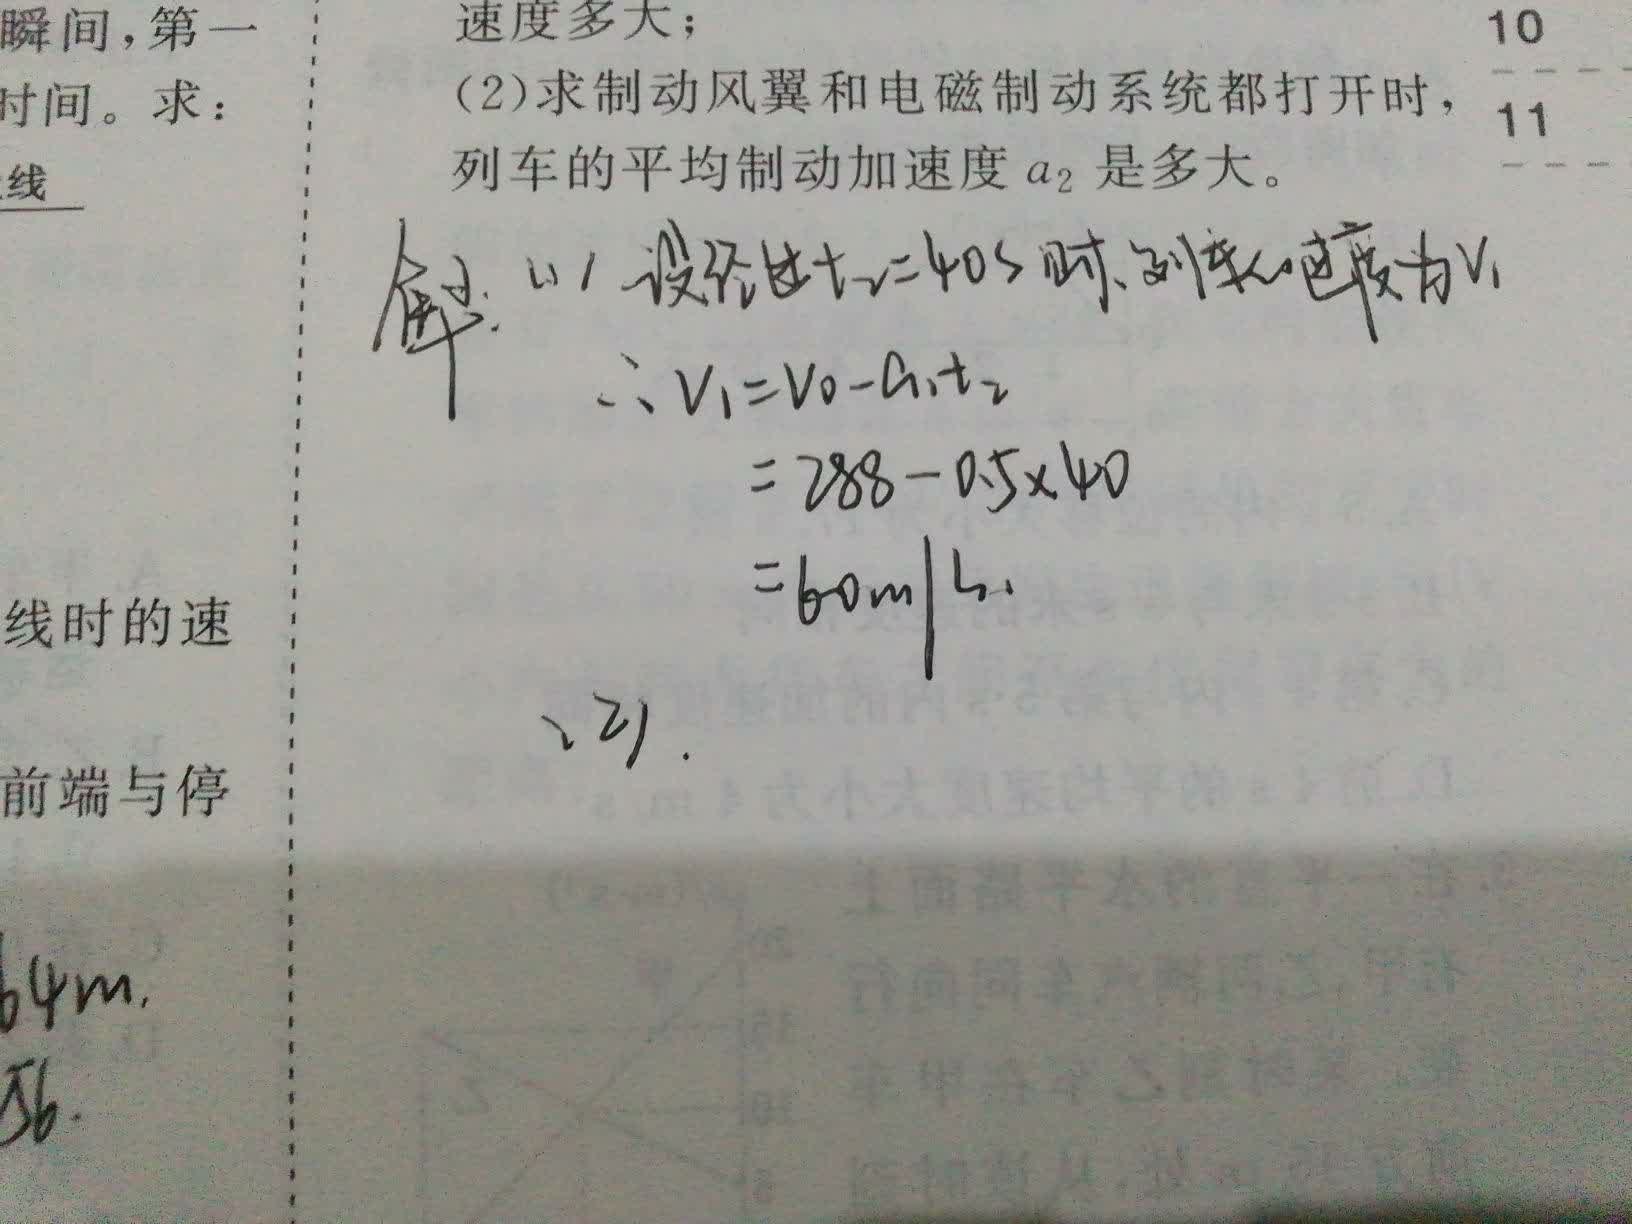 瞬间，第一
时间。求：
线
线时的速
前端与停
64m.
56.
速度多大；
(2)求制动风翼和电磁制动系统都打开时，
列车的平均制动加速度 a₂ 是多大。
解: (1) 设经过t₂=40s时、列车的速度为V₁
∴V₁=V0-a₁t₂
=288-0.5×40
=60m/s.
(2).
10
11